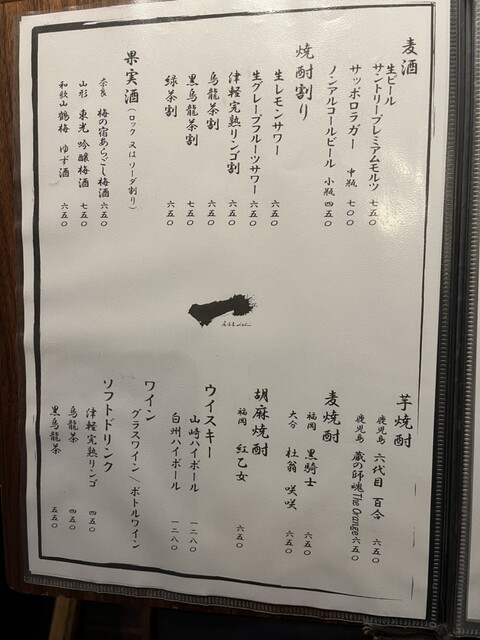 麦酒
生ビール
サントリープレミアムモルツ 七五〇
サッポロラガー 中瓶 七〇〇
ノンアルコールビール 小瓶 四五〇
焼酎割り
生レモンサワー 六五〇
生グレープフルーツサワー 六五〇
津軽完熟リンゴ割 六五〇
烏龍茶割 六五〇
黒烏龍茶割 七五〇
緑茶割 六五〇
果実酒（ロック 又はソーダ割り）
奈良 梅の宿あらごし梅酒 六五〇
山形 東光 吟醸梅酒 七五〇
和歌山 鶴梅 ゆず酒 六五〇
芋焼酎
鹿児島 六代目 百合 六五〇
鹿児島 蔵の師魂 The Orange 六五〇
麦焼酎
福岡 黒騎士 六五〇
大分 杜翁 咲咲 六五〇
胡麻焼酎
福岡 紅乙女 六五〇
ウイスキー
山崎ハイボール 一二八〇
白州ハイボール 一二八〇
ワイン
グラスワイン／ボトルワイン
ソフトドリンク
津軽完熟リンゴ 四五〇
烏龍茶 四五〇
黒烏龍茶 五五〇